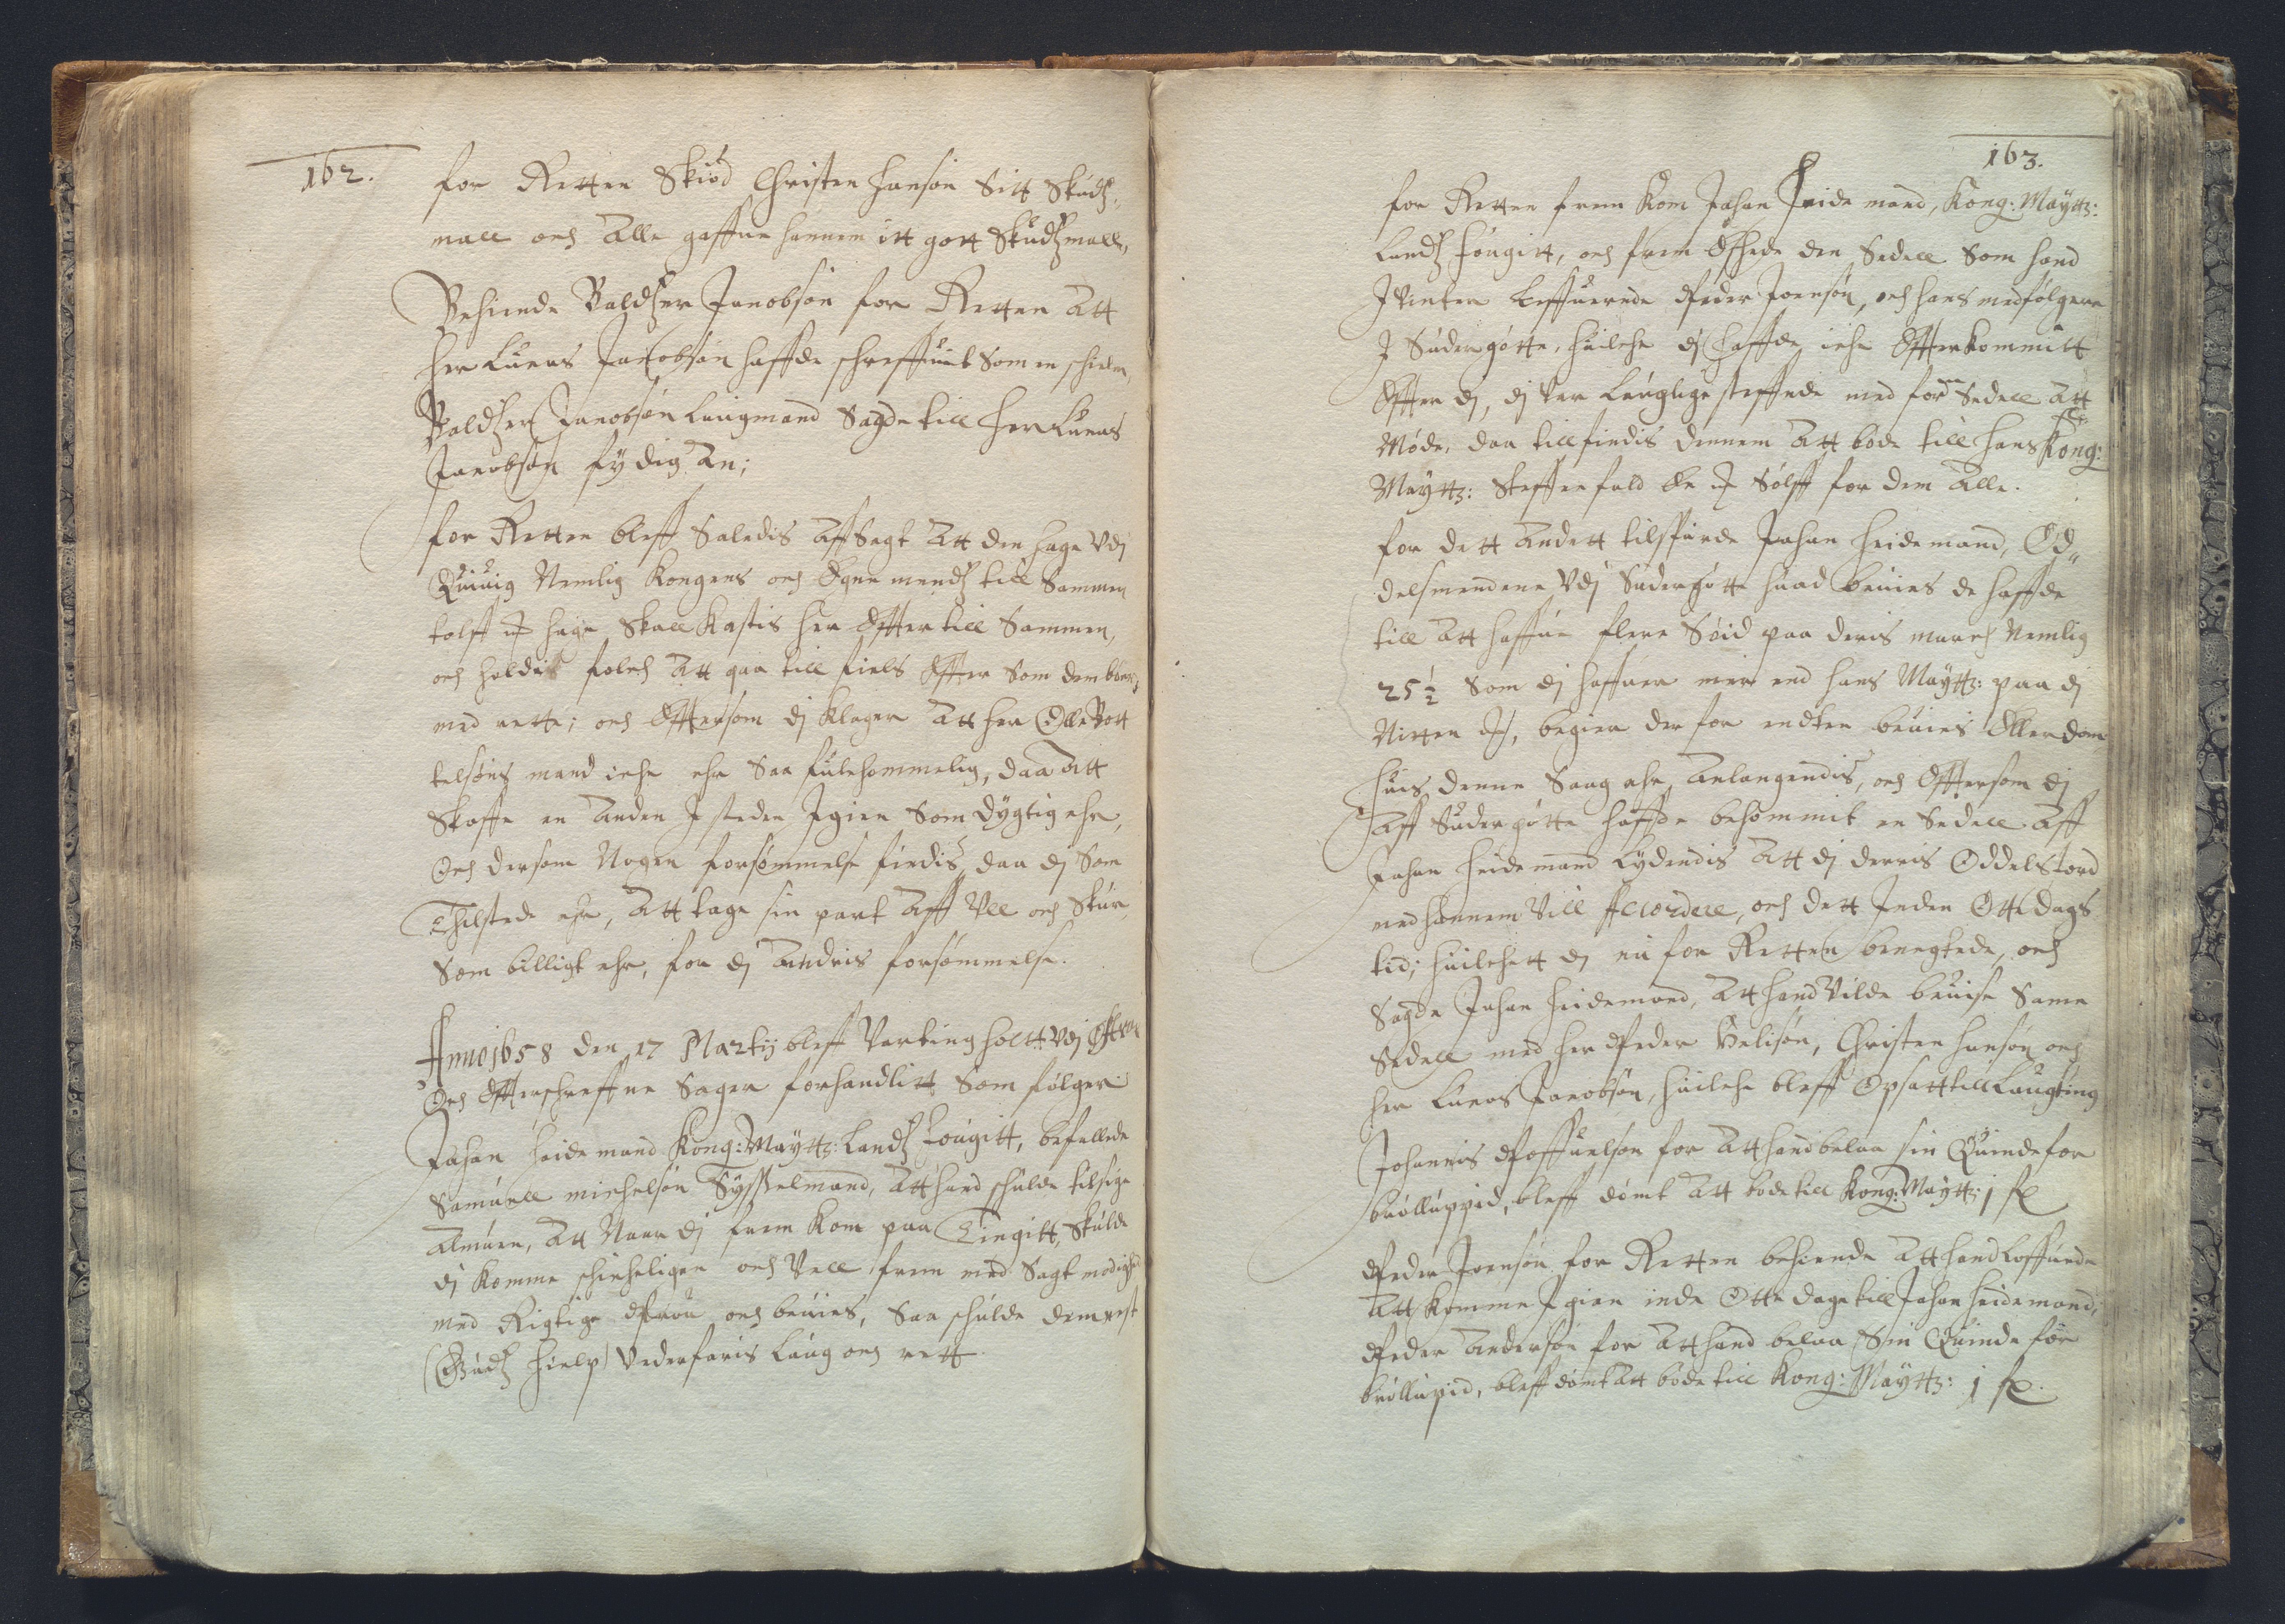 162.
for Retten Skiöd Christen Hansøn Sitt Skudtz-
maal och Alle gaffue hannem itt gott Skudtzmaall,
Behiende Baldtzer Jacobsøn for Retten Att
Her Lucas Jacobsøn haffde schreffuit Som en schielm,
Baldtzer Jacobsøn Laugmand Sagde till Her Lucas
Jacobsøn fÿ dig An;
for Retten bleff Saledis AffSagt Att den hage Vdj
Quiuig Nemlig Kongens och Egne mendtz till Sammen
tolff hage Skall Kastis her Effter till Sammen,
och holdis folch Att gaa till fiels Effter Som dem bör
med rette; och Efftersom dj klager Att her Olle Pott
telsøns mand iche ehr Saa fulchommelig, daa Att
Skaffe en Anden J steden Jgien Som dÿgtig ehr,
Och dersom Nogen forsømmelse findis, daa dj Som
Thilstede ehr, Att tage sin part Aff Vll och Skur,
Som billigt ehr, for dj Andris forsømmelse.
Anno 1658 den 17 Martij bleff Varting holtt Vdj Østerøe
Och Effterschreffne Sager forhandlitt Som følger
Johan Heidemand Kong: Maÿttz: Landtz Fougitt, befallede
Samuell Michelsøn SÿsSelmand, Att hand schulde tilsige
Almuen, Att Naar dj frem Kom paa Tingitt, Skulde
dj Komme schicheligen och Vell frem med Sagtmodighed
med Rigtige Prou och beuies, Saa schulde dem nest
(Gudtz Hielp) Vederfaris Laug och rett.
163.
for Retten frem Kom Johan Heidemand, Kong: Maÿttz:
Landtz Fougitt, och frem Eschede den Sedell Som hand
J Vinter Leffuerede Peder Joensøn, och hans medfølgere
J Südergøtte, huilche dj haffde iche Effterkommitt
Effter dj, dj Var Lauglige steffnede med for:ne Sedell Att
Møde, daa tillfindis dennem Att bøde till hans Kong:
Maÿttz: Steffnefald Sølff for dem Alle.
for dett Andett tilspurde Johan Heidemand, Od-
delsmendene Vdj Südergøtte huad beuies de haffde
till Att haffue flere Søid paa deris march Nemlig
25½ Som dj haffuer mere end hans Maÿttz: paa dj
Nitten, begier der for endten beuies Eller dom
Huis denne Saag ehr Anlangendis, och Effter som dj
Aff Südergøtte haffde bekommit en Sedell Aff
Johan Heidemand Lÿdendis Att dj derris Oddelstord
med hannem Vill Accordere, och dett Inden Otte dags
tid; huilchett dj nu for Retten benegtede, och
Sagde Johan Heidemand, Att hand Vilde beuise Same
Sedell med her Peder Christen Hansøn och
her Lucas Jacobsøn, huilche bleff Opsatt till Laugting
Johannis Poffuelsøn for Att hand belaa sin Quinde for
brølluppid, bleff dømt Att bøde till Kong: Maÿttz: j
Peder Joensøn for Retten behiende Att hand loffuede
Att Komme Jgien inde Otte dage till Johan Heidemand,
Peder Andersøn for Att hand belaa Sin Quinde før
brøllupid, bleff dømt Att bøde till Kong: Maÿttz: j